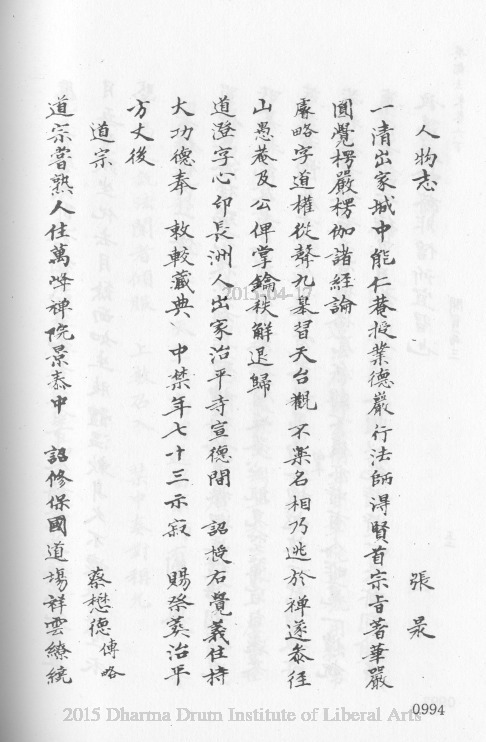 人物志
張 㫤
一清出家城中能仁菴授業德嚴行法師淂賢首宗旨著華嚴
圓覺楞嚴楞伽諸經論
處略字道權從聲九臯習天台觀不樂名相乃逃於禪遂叅徑
山愚菴及公俾掌鑰秩觧退歸
道澄字心印長洲人出家治平寺宣德間 詔授右覺義住持
大功德奉 敕較藏典 中禁年七十三示寂 賜祭葬治平
方丈後
道宗
蔡懋德 傳略
道宗嘗熟人住萬峰禅院景泰中 詔修保國道塲祥雲繚繞
2015-04-17
0994
2015 Dharma Drum Institute of Liberal Arts